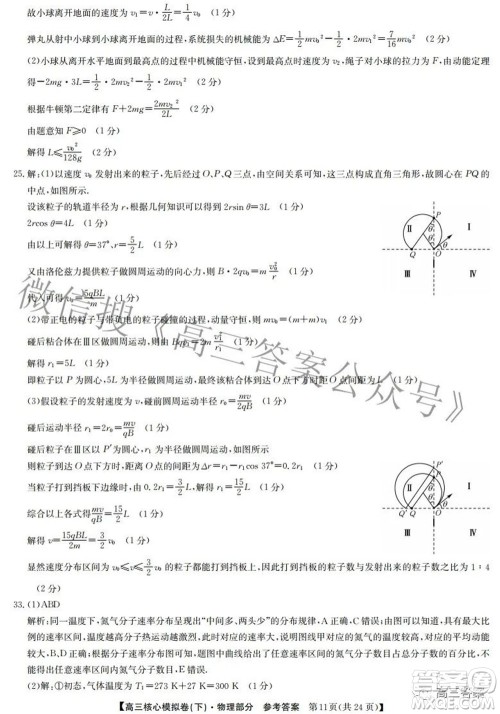 故小球离开地面的速度为 v₁=v·L/2L=1/4 v₀ (1分)
弹丸从射中小球到小球离开地面的过程，系统损失的机械能为 ΔE=1/2 mv₀²−1/2·2mv₁²=7/16 mv₀² (2分)
(2)小球从离开水平地面到经过最高点的过程中机械能守恒，设到最高点时速度为 v₂，绳子对小球的拉力为 F，由动能定
理得−2mg·3L=1/2·2mv₂²−1/2·2mv₁² (2分)
根据牛顿第二定律有 F+2mg=2mv₂²/2L (1分)
由题意知 F≥0 (1分)
解得 L≤v₀²/128g (2分)
25.解：(1)以速度 v₀ 发射出来的粒子，先后经过 O、P、Q 三点，由空间关系可知，这三点构成直角三角形，故圆心在 PQ 的
中点，如图所示.
设该粒子的轨道半径为 r，根据几何知识可以得到 2rsin θ=3L (1分)
2rcos θ=4L (1分)
由以上可解得 θ=37°，r=5/2 L (1分)
又由洛伦兹力提供粒子做圆周运动的向心力，B·2qv₀=m v₀²/r (1分)
代入可得 v₀=5qBL/m (1分)
(2)带正电的粒子与带负电的粒子碰撞的过程，动量守恒：mv₀=(m+m)v₁ (2分)
碰后粘合体在第Ⅲ区做圆周运动，则 Bqv₁=2m v₁²/r₁ (1分)
解得 r₁=5L (1分)
即粒子以 P 为圆心，5L 为半径做圆周运动，最终该粘合体在 O 点下方与挡板相碰，且距离 O 点为 L (1分)
(3)假设粒子的发射速度为 v，碰前圆周运动半径为 r₀=mv/2qB (1分)
碰后运动半径：r₁=2r₀=mv/qB (1分)
碰后粒子在Ⅲ区以 P′为圆心，r₁ 为半径做圆周运动，如图所示
则粒子转到 O 点下方时，距离 O 点为 Δr=r₁−r₁cos 37°=0.2r₁ (1分)
当粒子打到挡板下边缘时，由 0.2r₁=3/2 L 得 r₁=15/2 L (1分)
综合以上各式得 mv/qB=15/2 L
解得 v=15qBL/2m=3/2 v₀ (1分)
显然速度分布区间为 v₀≤v≤3/2 v₀ 的粒子都能打到挡板上，因此打到挡板的粒子数与发射出来的粒子数之比为 1∶4
(2分)
33.(1)ABD
解析：同一温度下，氮气分子速率分布呈现出“中间多、两头少”的分布规律，A 正确，C 错误；由图可知，具有最大比例
的速率区间，温度越高分子热运动越激烈，对应的速率大，B 正确；温度升高，速率大的区间分子数所占比增加，
D 正确；因为气体的分子总数未知，所以题目中曲线给出了任意速率区间的氮气分子数占据的比例，但无法确定任意速
率区间内氮气分子数目，E 错误.
(2)解：①初态，气体温度为 T₁=273 K+27 K=300 K (1分)
【高三核心模拟卷(下)·物理部分 参考答案 第 11 页(共 24 页)】
微信搜《高三答案公众号》
高三答案
P
Q
O
θ
Ⅰ
Ⅱ
Ⅲ
Ⅳ
P′
P
Q′
Q
O
θ
Ⅰ
Ⅱ
Ⅲ
Ⅳ